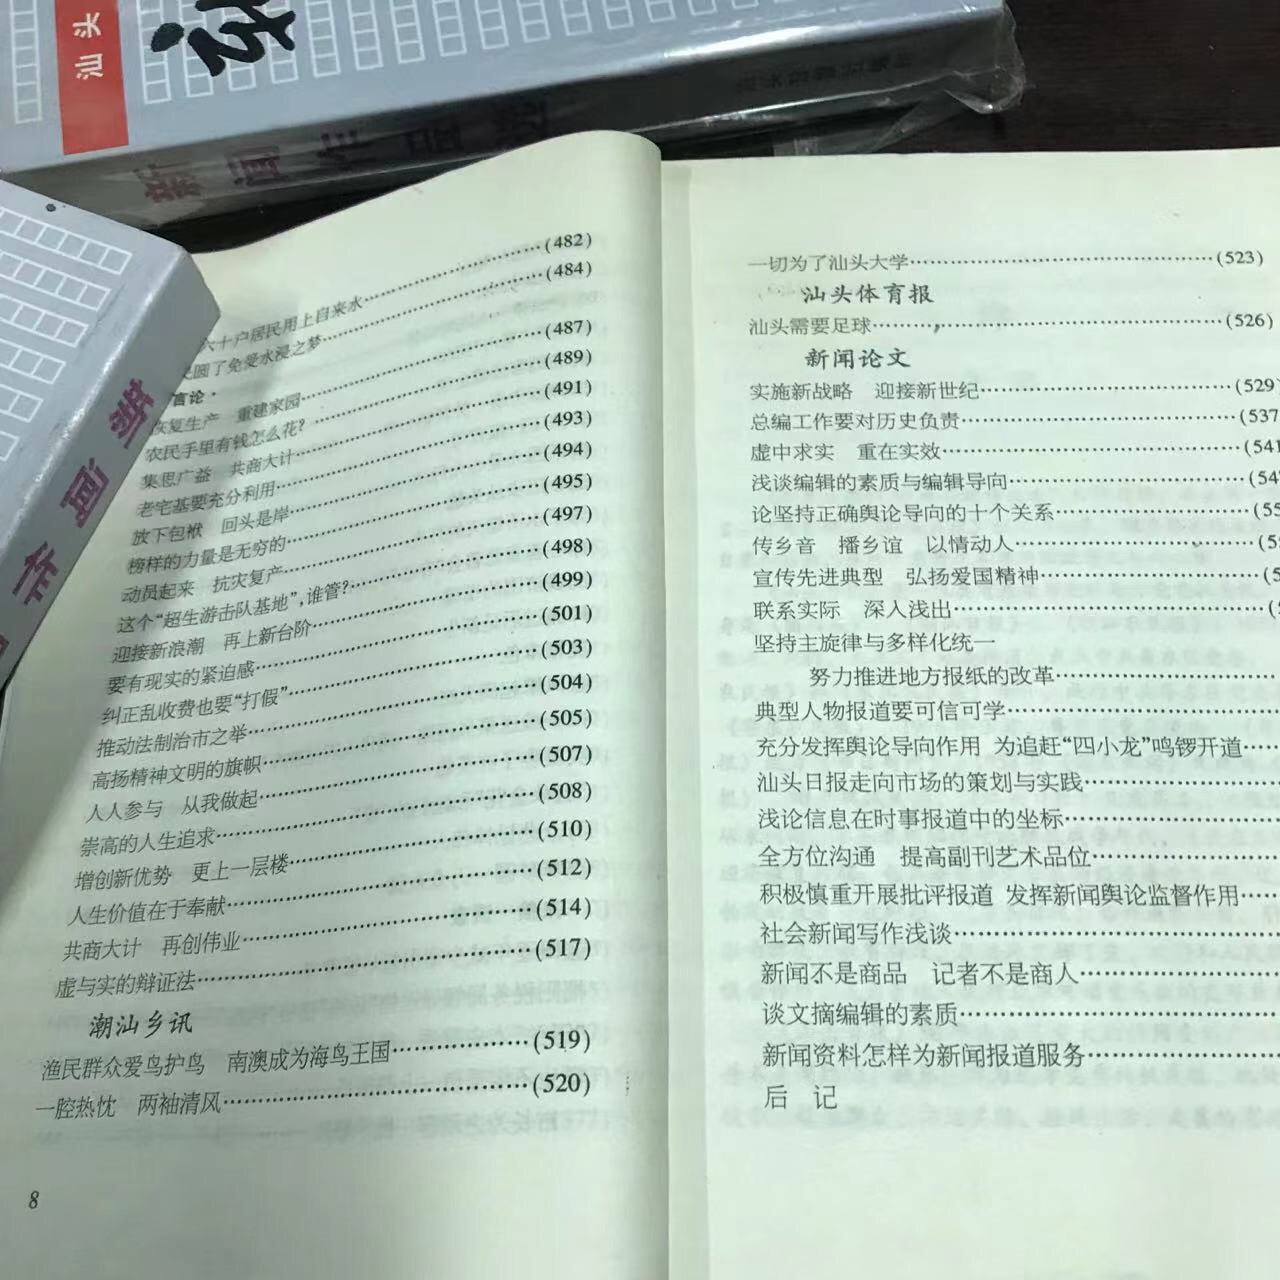 汕头
新闻作品
新闻作品
六十户居民用上自来水……(482)
圆了免受水浸之梦……(484)
言论·
恢复生产 重建家园……(487)
农民手里有钱怎么花?……(489)
集思广益 共商大计……(491)
老宅基要充分利用……(493)
放下包袱 回头是岸……(494)
榜样的力量是无穷的……(495)
动员起来 抗灾复产……(497)
这个“超生游击队基地”,谁管?……(498)
迎接新浪潮 再上新台阶……(499)
要有现实的紧迫感……(501)
纠正乱收费也要“打假”……(503)
推动法制治市之举……(504)
高扬精神文明的旗帜……(505)
人人参与 从我做起……(507)
崇高的人生追求……(508)
增创新优势 更上一层楼……(510)
人生价值在于奉献……(512)
共商大计 再创伟业……(514)
虚与实的辩证法……(517)
潮汕乡讯
渔民群众爱鸟护鸟 南澳成为海鸟王国……(519)
一腔热忱 两袖清风……(520)
8
一切为了汕头大学……(523)
汕头体育报
汕头需要足球……(526)
新闻论文
实施新战略 迎接新世纪……(529)
总编工作要对历史负责……(537
虚中求实 重在实效……(541
浅谈编辑的素质与编辑导向……(54
论坚持正确舆论导向的十个关系……(55
传乡音 播乡谊 以情动人……(5
宣传先进典型 弘扬爱国精神……(5
联系实际 深入浅出……(
坚持主旋律与多样化统一
努力推进地方报纸的改革……
典型人物报道要可信可学……
充分发挥舆论导向作用 为追赶“四小龙”鸣锣开道……
汕头日报走向市场的策划与实践……
浅论信息在时事报道中的坐标……
全方位沟通 提高副刊艺术品位……
积极慎重开展批评报道 发挥新闻舆论监督作用……
社会新闻写作浅谈……
新闻不是商品 记者不是商人……
谈文摘编辑的素质……
新闻资料怎样为新闻报道服务……
后 记